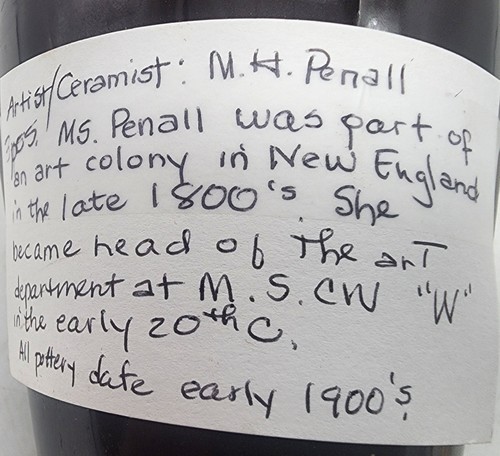 Artist/Ceramist: M.H. Penall
Ms. Penall was part of
an art colony in New England
in the late 1800's. She
became head of The arT
department at M.S.CW "W"
in the early 20th C.
All pottery date early 1900's.